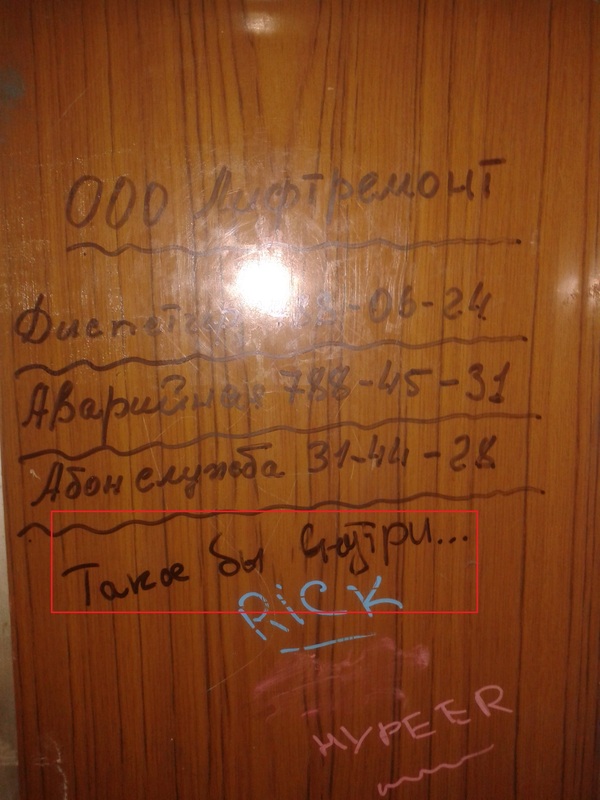 ООО Лифтремонт
-06-24
Аварийная 788-45-31
Абон служба 31-44-28
Такое бы внутри...
RiCK
HYPEER